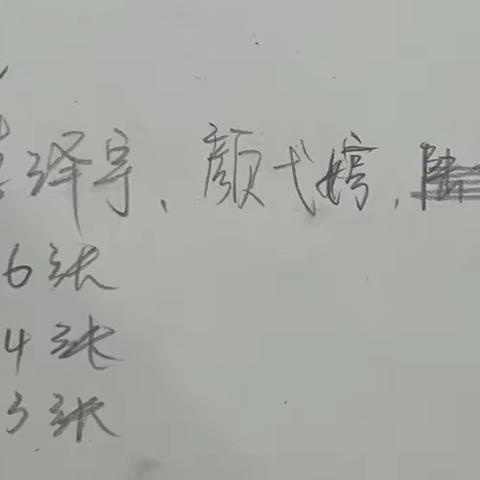 泽宇、颜弋嫮、
6张
4张
3张